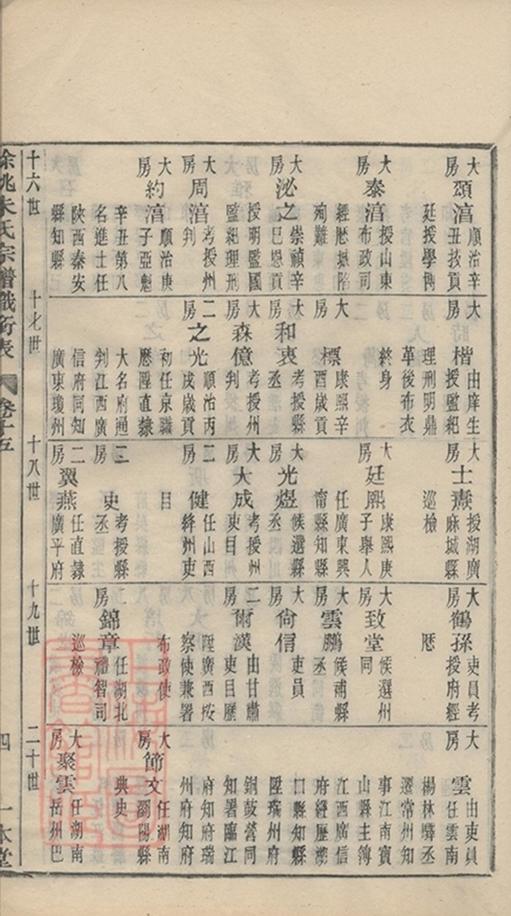 大房 頴淯 順治辛丑拔貢廷授學博
大房 泰淯 授山東布政司經歷城陷殉難
大房 泌之 崇禎辛巳恩貢授明監國監紀理刑
大房 周淯 考授州判
大房 約淯 順治庚子亞魁辛丑第八名進士任陝西秦安縣知縣
十六世
大房 楷 由庠生授監紀理刑明鼎革後布衣終身
大房 標 康熙辛酉歲貢
大房 和衷 考授縣丞
大房 森億 考授州判
二房 之光 順治丙戌歲貢初任京衞歷陞直隸大名府通判江西廣信府同知廣東瓊州
十七世
大房 士燾 授湖廣麻城縣巡檢
大房 廷熙 康熙庚子舉人任廣東興甯縣知縣
大房 光煜 候選縣丞
大房 大成 考授州吏目
二房 健 任山西絳州吏目
二房 史 考授縣丞
二房 翼燕 任直隸廣平府
十八世
大房 鶴孫 吏員考授府經歷
大房 致堂 候選州同
大房 雲鵬 候補縣丞
大房 尙信 吏員
二房 爾漢 由甘肅吏目歷陞廣西按察使兼署布政使
房 錦章 任湖北禮智司巡檢
十九世
大房 雲 由吏員任雲南楊林驛丞選常州知事江南寶山縣主簿江西廣信府經歷湖口縣知縣陞瑞州府銅鼓營同知署臨江府知府瑞州府知府
大房 節文 任湖南瀏陽縣典史
大房 聚雲 任湖南岳州巴
二十世
餘姚朱氏宗譜職銜表 卷十五
四
一本堂